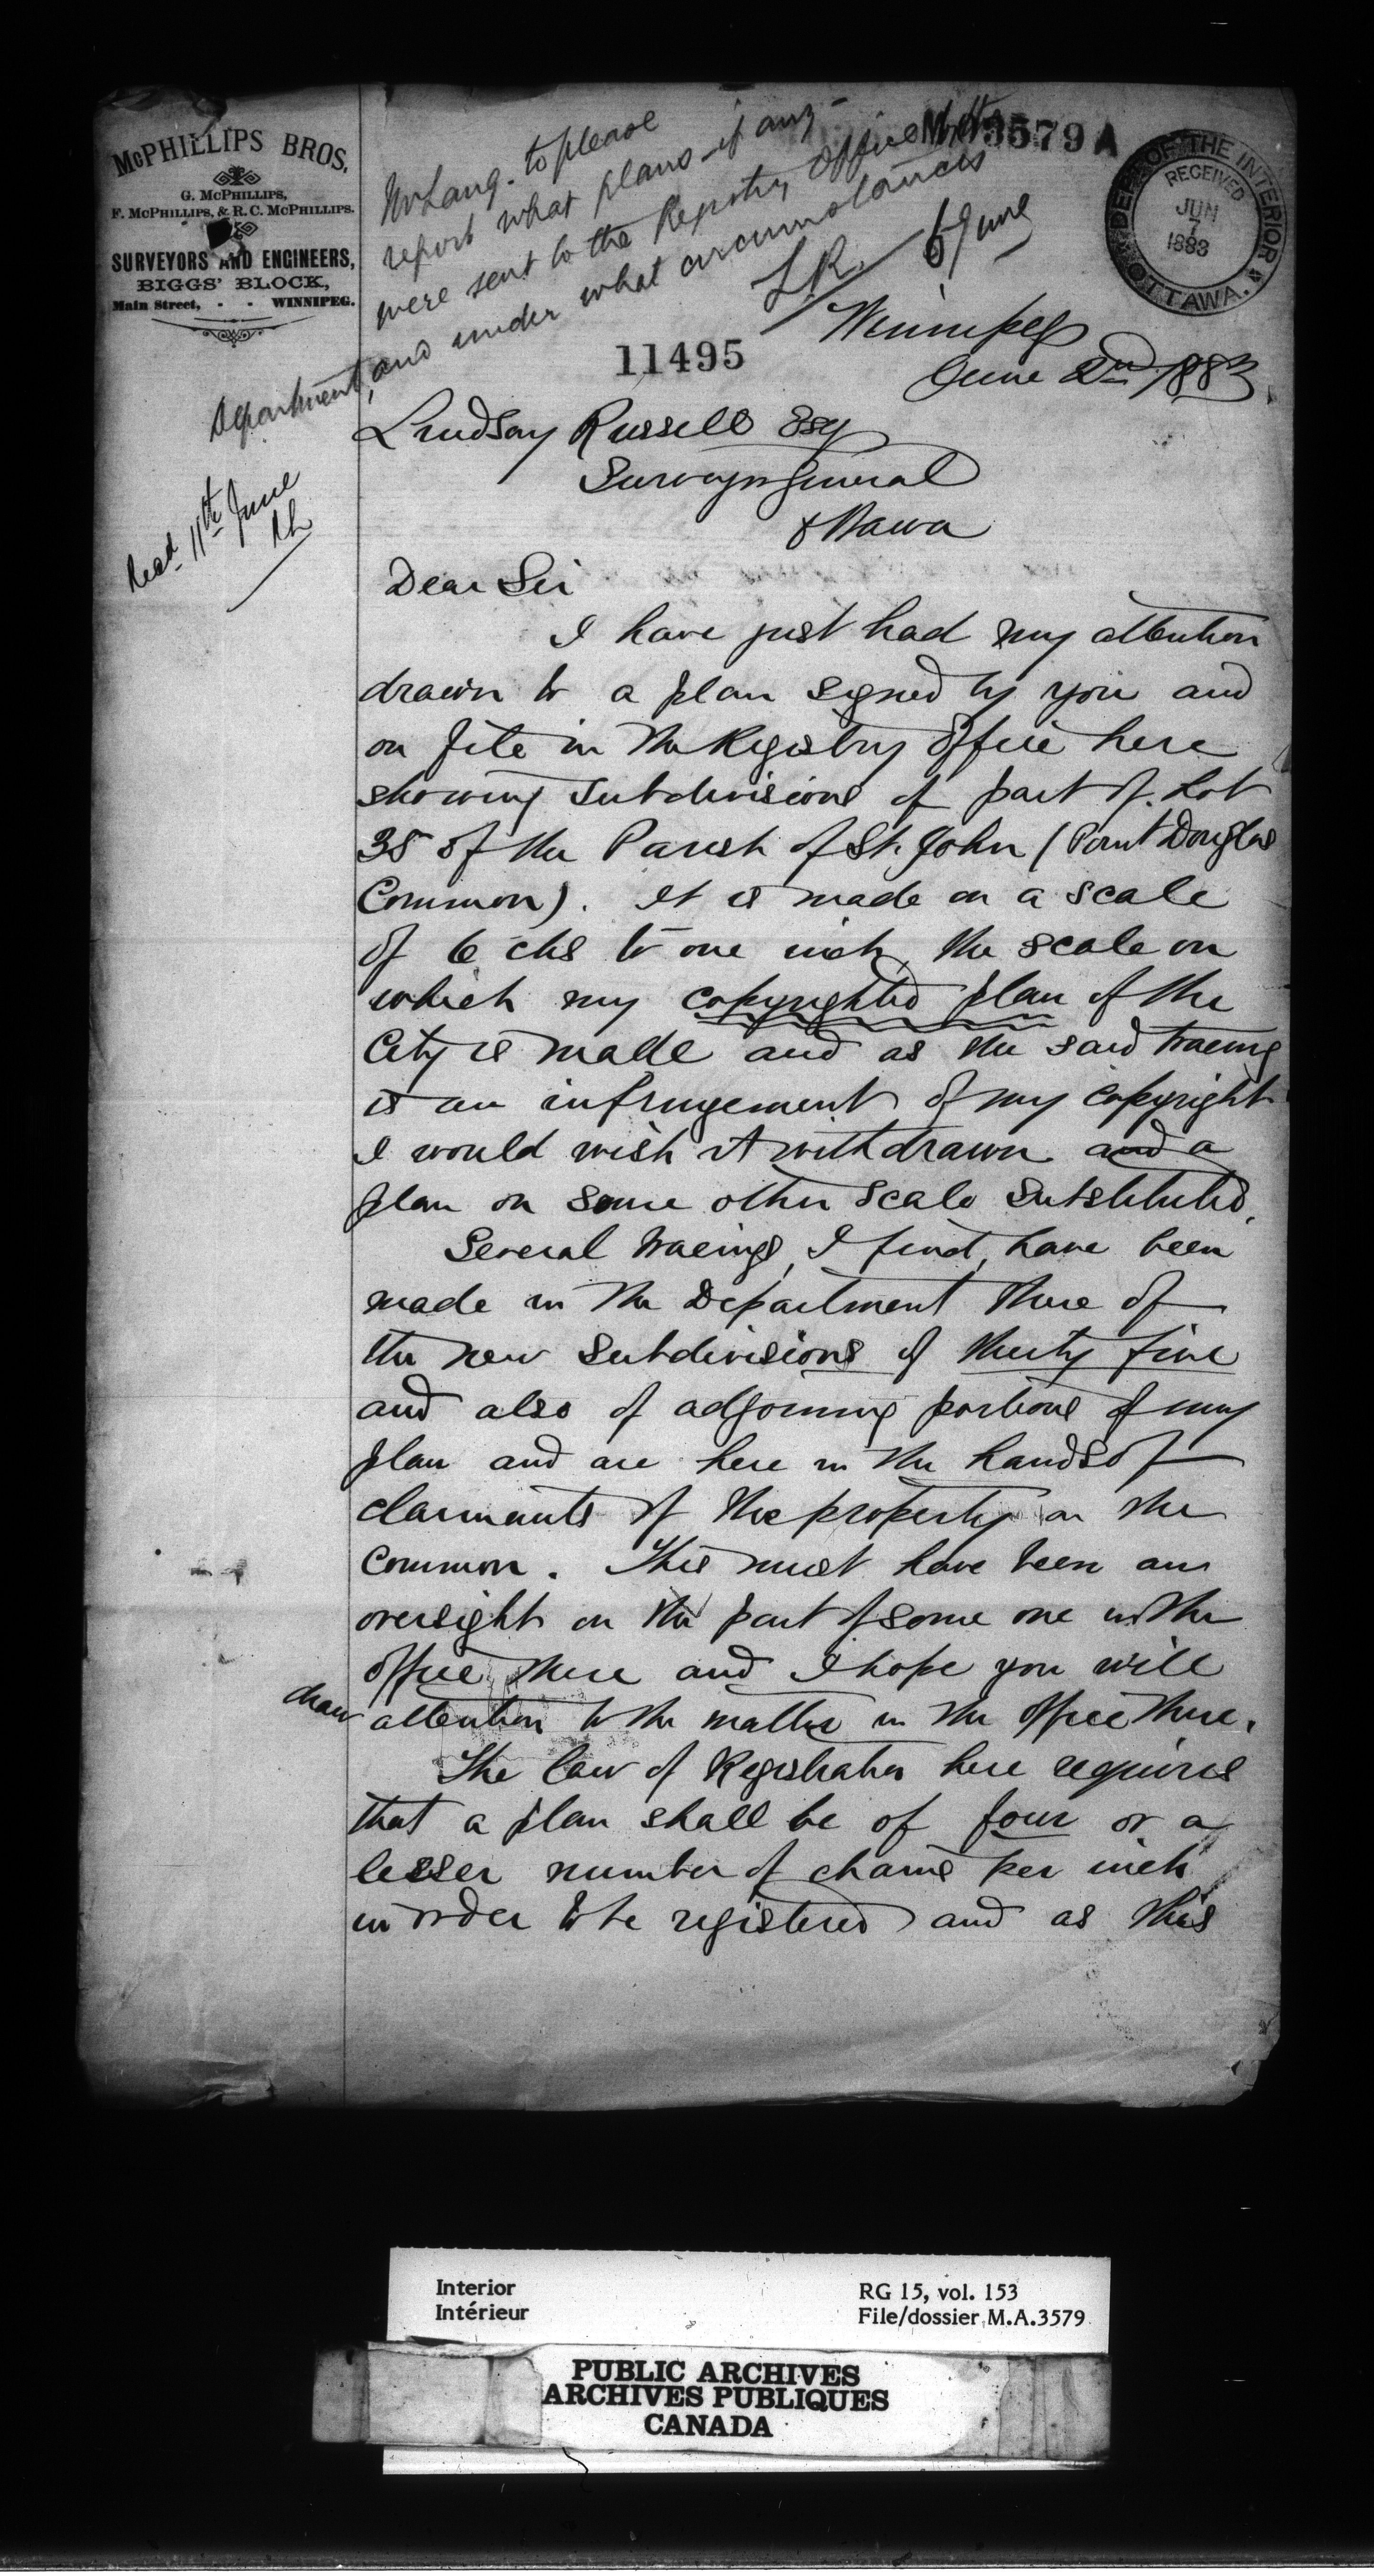 McPHILLIPS BROS.
G. McPHILLIPS,
F. McPHILLIPS, & R. C. McPHILLIPS.
SURVEYORS AND ENGINEERS,
BIGGS' BLOCK,
Main Street, - - WINNIPEG.
Mr Lang. to please
report what plans - if any -
were sent to the Registry Office by the
Department, and under what circumstances
L.R. 6 June
M.A. 3579 A
DEPT OF THE INTERIOR
RECEIVED
JUN
7
1883
OTTAWA.
11495
Recd 11th June
Winnipeg
June 2nd 1883
Lindsay Russell Esq
Surveyor General
Ottawa
Dear Sir
I have just had my attention
drawn to a plan signed by you and
on file in the Registry Office here
showing subdivisions of part of Lot
35 of the Parish of St. John (Point Douglas
Common). It is made on a scale
of 6 chs to one inch, the scale on
which my copyrighted plan of the
City is made and as the said tracing
is an infringement of my copyright
I would wish it withdrawn and a
plan on some other scale substituted.
Several tracings, I find, have been
made in the Department there of
the new subdivisions of thirty five
and also of adjoining portions of my
plan and are here in the hands of
claimants of the property on the
Common. This must have been an
oversight on the part of some one in the
office there and I hope you will
draw attention to the matter in the office there.
The law of Registration here requires
that a plan shall be of four or a
lesser number of chains per inch
in order to be registered and as this
Interior
Intérieur
RG 15, vol. 153
File/dossier M.A.3579
PUBLIC ARCHIVES
ARCHIVES PUBLIQUES
CANADA